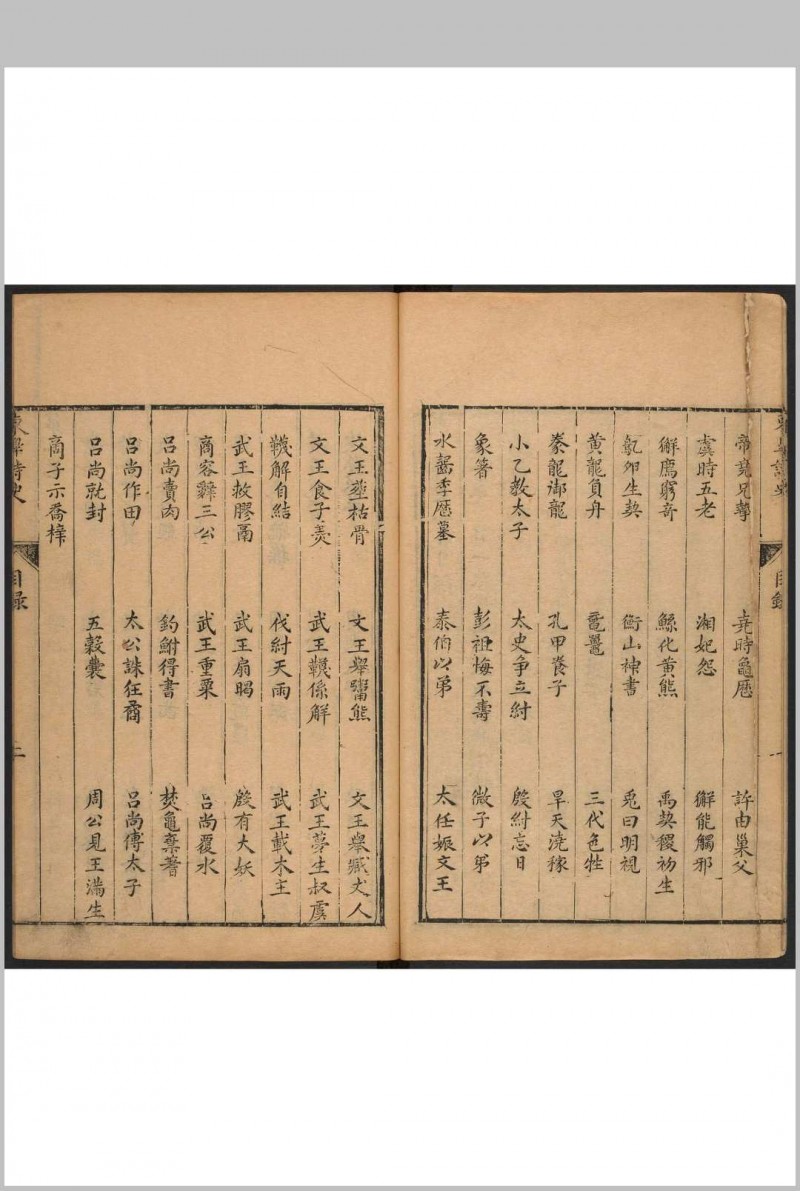 帝堯兄摯　堯時龜曆　許由巢父
虞時五老　湘妃怨　獬能觸邪
獬廌窮奇　鯀化黄熊　禹契稷初生
鳦卵生契　衡山神書　兎曰明視
黄龍負舟　黿鼉　三代色牲
豢龍御龍　孔甲養子　旱天澆稼
小乙教太子　太史争立紂　殷紂忘日
象箸　彭祖悔不壽　微子以弟
水齧季歷墓　泰伯以弟　太任娠文王
目錄
一
文王塟枯骨　文王舉鬻熊　文王舉臧丈人
文王食子羹　武王韈係解　武王夢生叔虞
韈解自結　伐紂天雨　武王載木主
武王救膠鬲　武王扇暍　殷有大妖
商容辭三公　武王重粟　吕尚覆水
吕尚賣肉　釣鮒得書　焚龜棄蓍
吕尚作田　太公誅狂矞　吕尚傅太子
吕尚就封　五穀囊　周公見王滿生
商子示喬梓
目錄
二